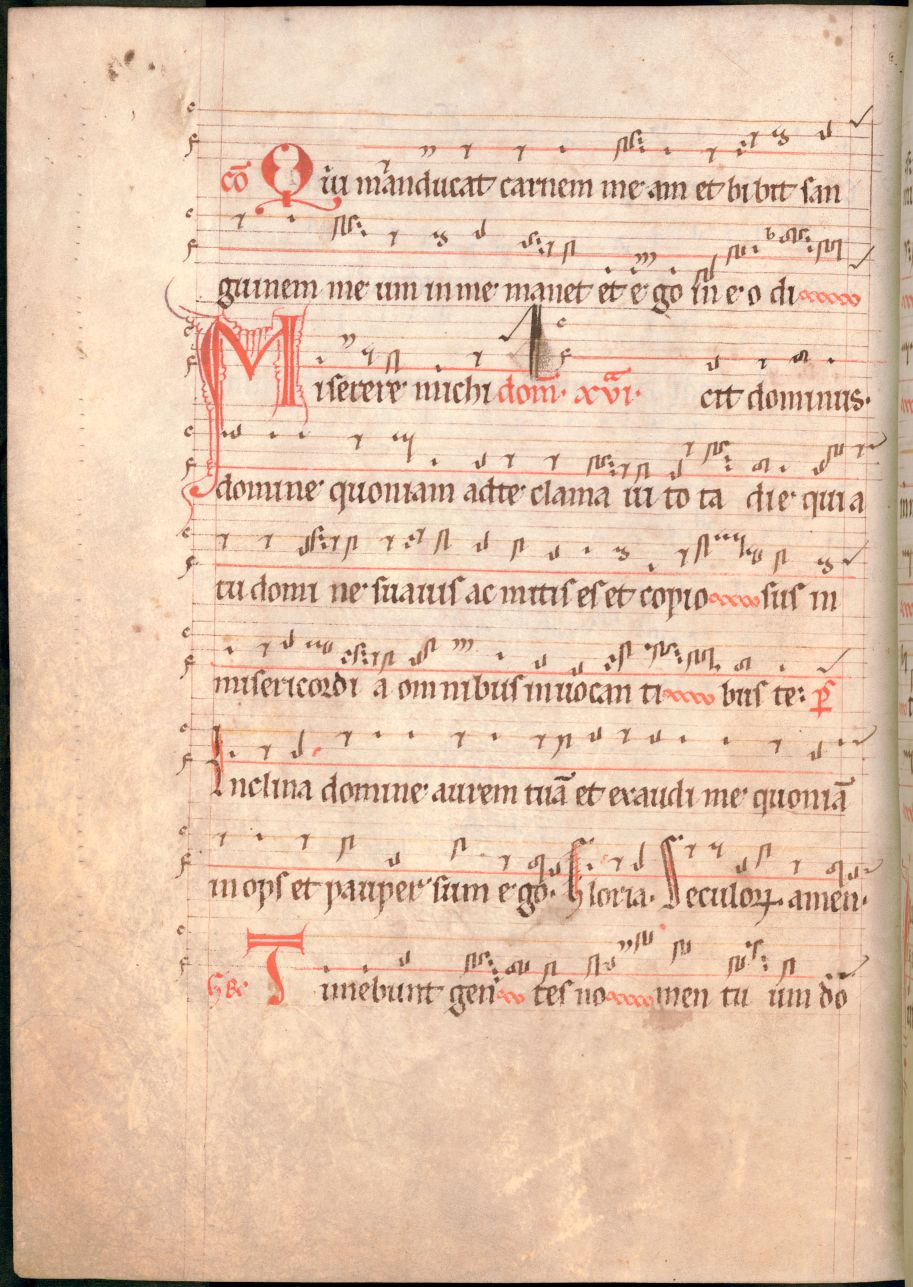 cō Qui manducat carnem me am et bi bit san
guinem me um in me manet et e go in e o di
Miserere michi dom̄. xvi. cit dominus.
domine quoniam ad te clama ui to ta die qui a
tu domi ne suauis ac mitis es et copio sus in
misericordi a omnibus inuocan ti bus te: p̄s
Inclina domine aurem tuā et exaudi me quoniā
inops et pauper sum e go. Gloria. Seculoꝝ. amen.
Timebunt gen tes no men tu um dō